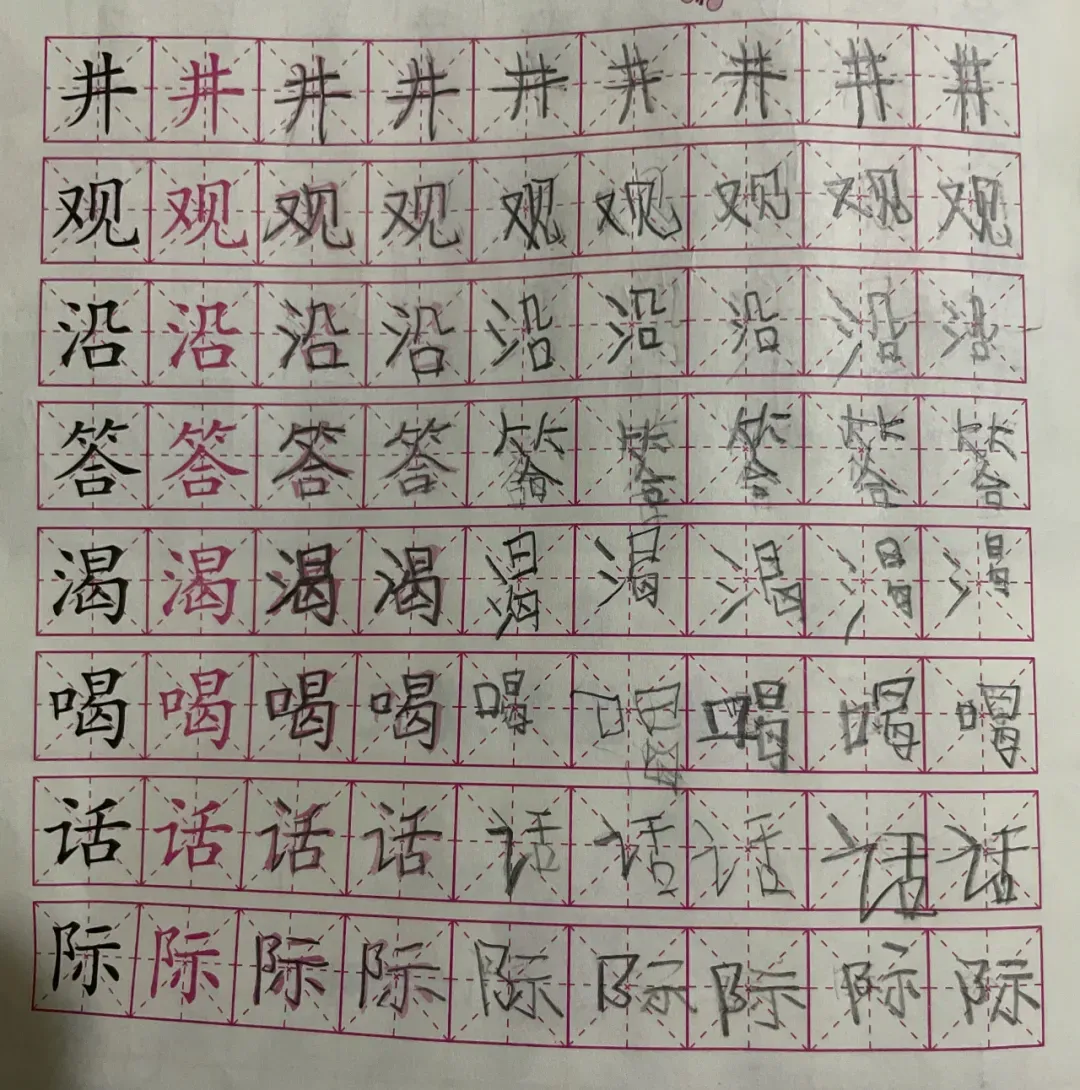 井井井井井井井井井
观观观观观观观观观
沿沿沿沿沿沿沿沿沿
答答答答答答答答答
渴渴渴渴渴渴渴渴渴
喝喝喝喝喝喝喝喝喝
话话话话话话话话话
际际际际际际际际际